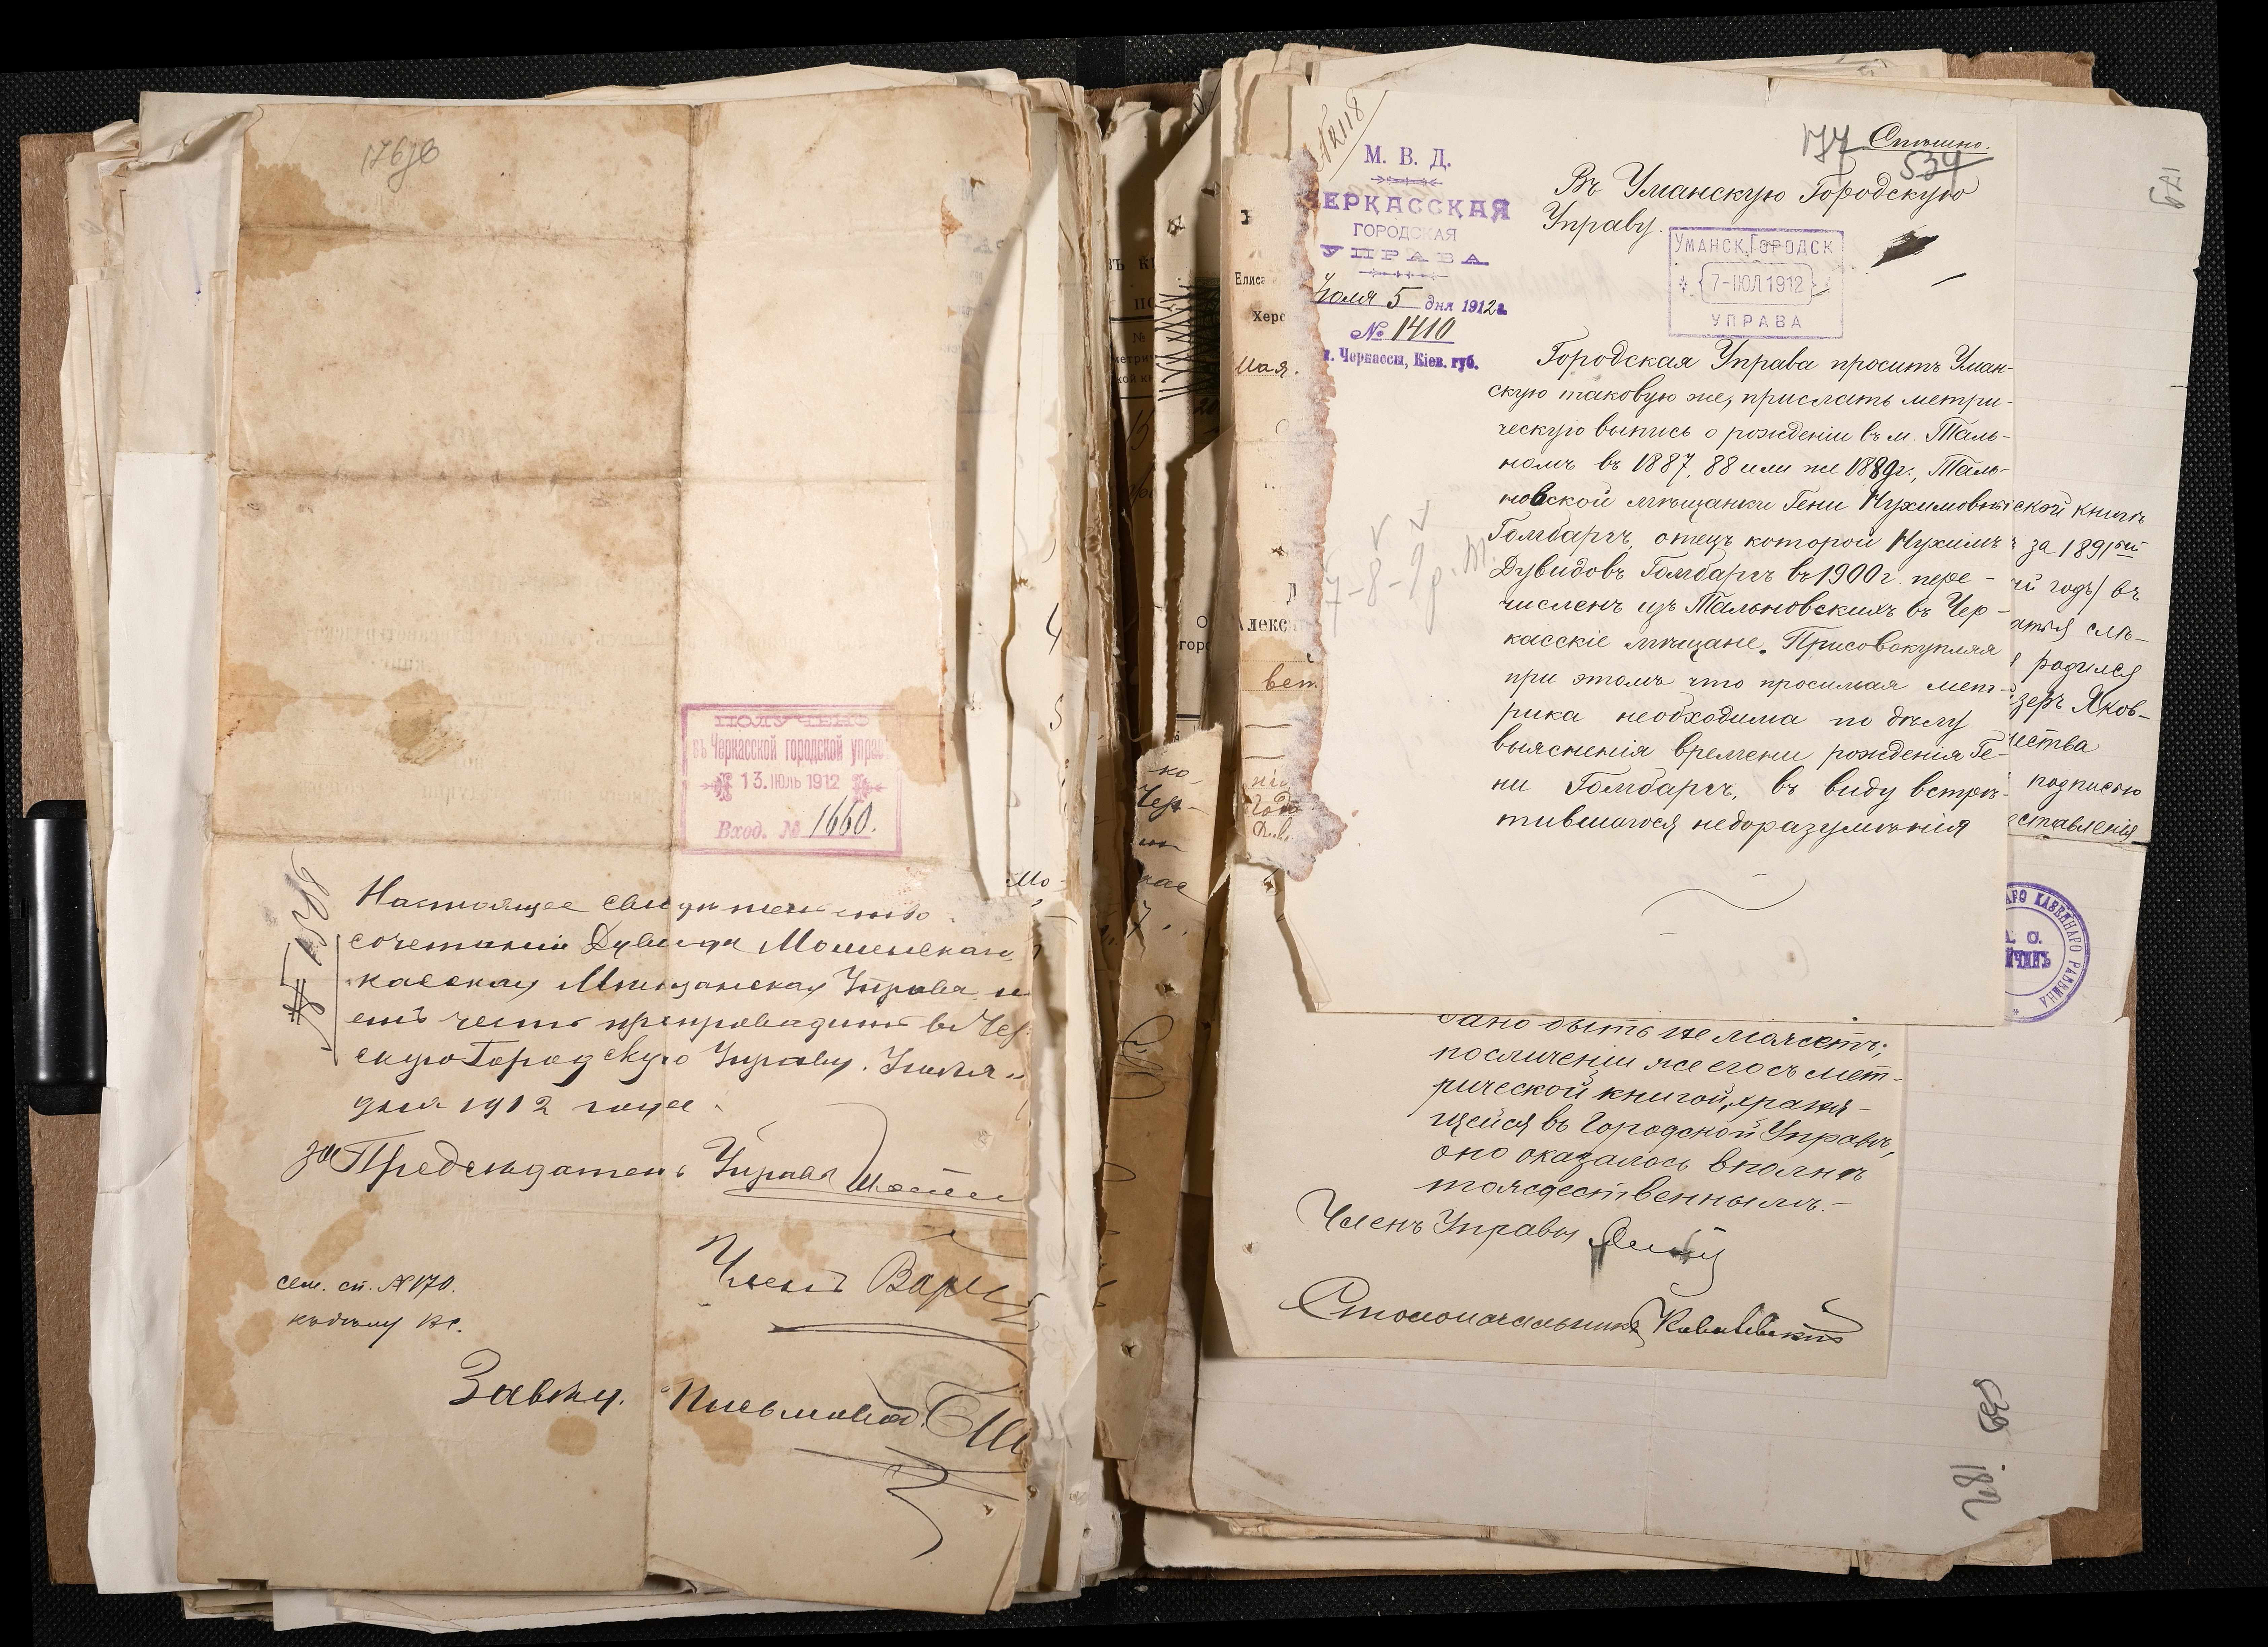 176 об
ПОЛУЧЕНО
въ Черкасской городской управ
13. ІЮЛЬ 1912
Вход. № 1660.
Настоящее свидетельство
сочетании Дувида Мошенскаго
касская Мещанская Управа
етъ честь препроводить въ Чер
скую Городскую Управу. Іюля
дня 1912 года
за Председатель Управы
Членъ
сем. сп. № 170.
Завед. Письмовод.
№ 2118
М. В. Д.
ЕРКАССКАЯ
ГОРОДСКАЯ
УПРАВА
Іюля 5 дня 1912 г.
№ 1410
г. Черкассы, Кіев. губ.
177 Спѣшно.
534
Въ Уманскую Городскую
Управу.
УМАНСК. ГОРОДСК
7-ІЮЛ 1912
УПРАВА
Городская Управа проситъ Уман-
скую таковую же, прислать метри-
ческую выпись о рожденіи въ м. Таль-
номъ въ 1887, 88 или же 1889 г., Таль-
новской мѣщанки Гени Нухимовны
Гомбаргъ, отецъ которой Нухимъ
Дувидовъ Гомбаргъ въ 1900 г. пере-
численъ изъ Тальновскихъ въ Чер-
касскіе мѣщане. Присовокупляя
при этомъ что просимая мет-
рика необходима по дѣлу
выясненія времени рожденія Ге-
ни Гомбаргъ, въ виду встрѣ-
тившагося недоразумѣнія
7-8-9 г. м.
ской книгѣ
за 1891 ый
й годъ) въ
родился
зеръ Яков-
чества
подписью
ставленія
АГО КАЗЕННАГО РАВВИНА
дано быть не можетъ;
по сличеніи же его съ мет-
рической книгой, храня-
щейся въ Городской Управѣ,
оно оказалось вполнѣ
тождественнымъ.-
Членъ Управы
Столоначальникъ Ковалевскій
179
181